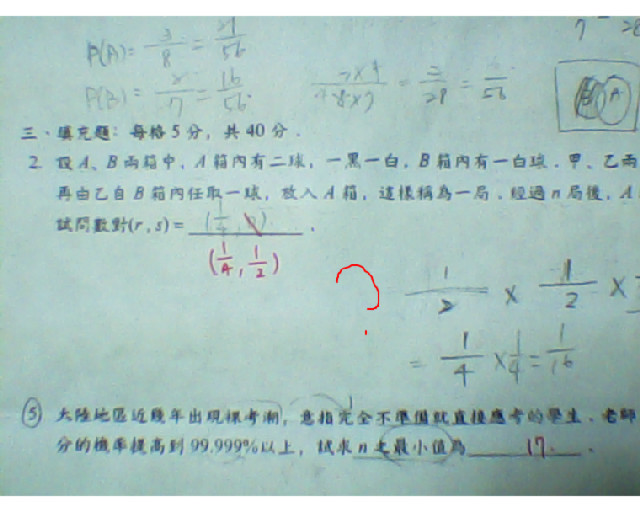 P(A)= 3/8 = 21/56
P(B)= 2/7 = 16/56
= 2/28 = /56
A
三、填充題：每格5分，共40分．
2. 設A、B兩箱中，A箱內有二球，一黑一白，B箱內有一白球．甲、乙兩
再由乙自B箱內任取一球，放入A箱，這樣稱為一局．經過n局後，A
試問數對(r,s)=
(1/4, 1/2)
?
1/2 × 1/2 ×
= 1/4 × 1/4 = 1/16
5 大陸地區近幾年出現裸考潮，意指完全不準備就直接應考的學生．老師
分的機率提高到99.999%以上，試求n之最小值為 17 ．